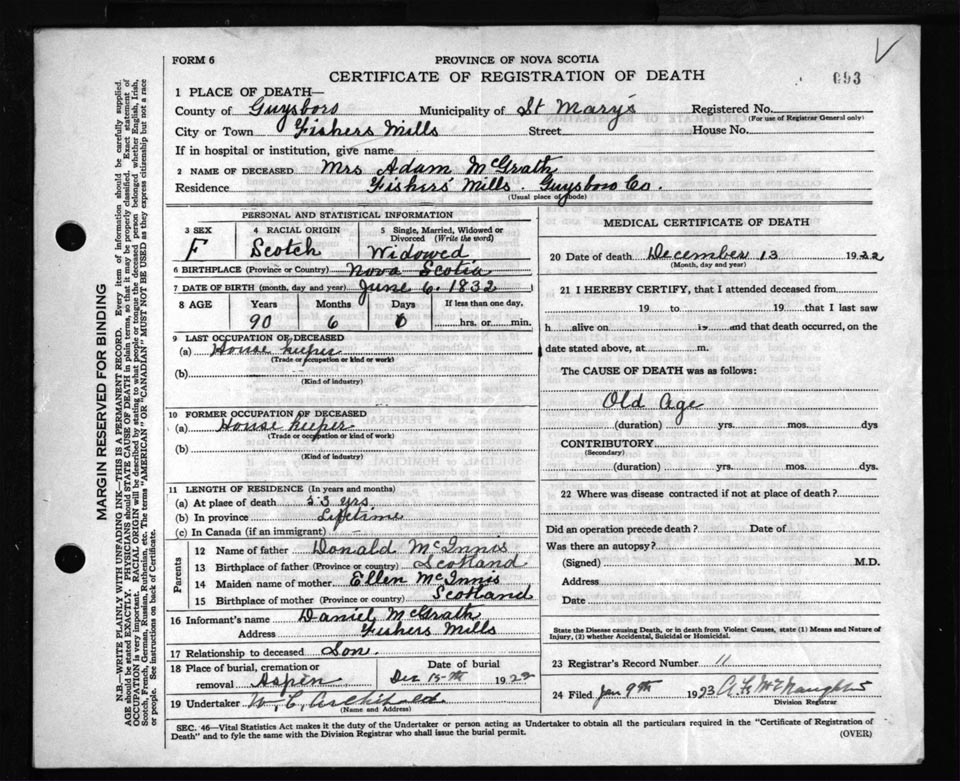 FORM 6
PROVINCE OF NOVA SCOTIA
CERTIFICATE OF REGISTRATION OF DEATH
693
1 PLACE OF DEATH—
County of Guysboro Municipality of St Mary's Registered No.
(For use of Registrar General only)
City or Town Fishers Mills Street House No.
If in hospital or institution, give name
2 NAME OF DECEASED Mrs Adam McGrath
Residence Fishers' Mills. Guysboro Co.
(Usual place of abode)
PERSONAL AND STATISTICAL INFORMATION
3 SEX 4 RACIAL ORIGIN 5 Single, Married, Widowed or Divorced (Write the word)
F Scotch Widowed
6 BIRTHPLACE (Province or Country) Nova Scotia
7 DATE OF BIRTH (month, day and year) June 6. 1832
8 AGE Years Months Days If less than one day,
90 6 hrs. or min.
9 LAST OCCUPATION OF DECEASED
(a) House keeper
(Trade or occupation or kind of work)
(b)
(Kind of industry)
10 FORMER OCCUPATION OF DECEASED
(a) House keeper
(Trade or occupation or kind of work)
(b)
(Kind of industry)
11 LENGTH OF RESIDENCE (In years and months)
(a) At place of death 53 yrs
(b) In province Lifetime
(c) In Canada (if an immigrant)
Parents
12 Name of father Donald McInnis
13 Birthplace of father (Province or country) Scotland
14 Maiden name of mother Ellen McInnis
15 Birthplace of mother (Province or country) Scotland
16 Informant's name Daniel McGrath
Address Fishers Mills
17 Relationship to deceased Son.
18 Place of burial, cremation or removal Aspen Date of burial Dec 15th 1922
19 Undertaker W. C. Archibald
(Name and Address)
MEDICAL CERTIFICATE OF DEATH
20 Date of death December 13 1922
(Month, day and year)
21 I HEREBY CERTIFY, that I attended deceased from
19 to 19 that I last saw
h alive on 19 and that death occurred, on the
date stated above, at m.
The CAUSE OF DEATH was as follows:
Old Age
(duration) yrs. mos. dys
CONTRIBUTORY
(Secondary)
(duration) yrs. mos. dys.
22 Where was disease contracted if not at place of death?
Did an operation precede death? Date of
Was there an autopsy?
(Signed) M.D.
Address
Date
State the Disease causing Death, or in death from Violent Causes, state (1) Means and Nature of
Injury, (2) whether Accidental, Suicidal or Homicidal.
23 Registrar's Record Number 11
24 Filed Jan 9th 1923
Division Registrar
SEC. 46—Vital Statistics Act makes it the duty of the Undertaker or person acting as Undertaker to obtain all the particulars required in the "Certificate of Registration of
Death" and to fyle the same with the Division Registrar who shall issue the burial permit. (OVER)
MARGIN RESERVED FOR BINDING
N.B.—WRITE PLAINLY WITH UNFADING INK—THIS IS A PERMANENT RECORD. Every item of information should be carefully supplied.
AGE should be stated EXACTLY. PHYSICIANS should STATE CAUSE OF DEATH in plain terms, so that it may be properly classified. Exact statement of
OCCUPATION is very important. RACIAL ORIGIN will be described by stating to what people or tongue the deceased person belonged whether English, Irish,
Scotch, French, German, Russian, Ruthenian, etc. The terms "AMERICAN" OR "CANADIAN" MUST NOT BE USED as they express citizenship but not a race
or people. See instructions on back of Certificate.